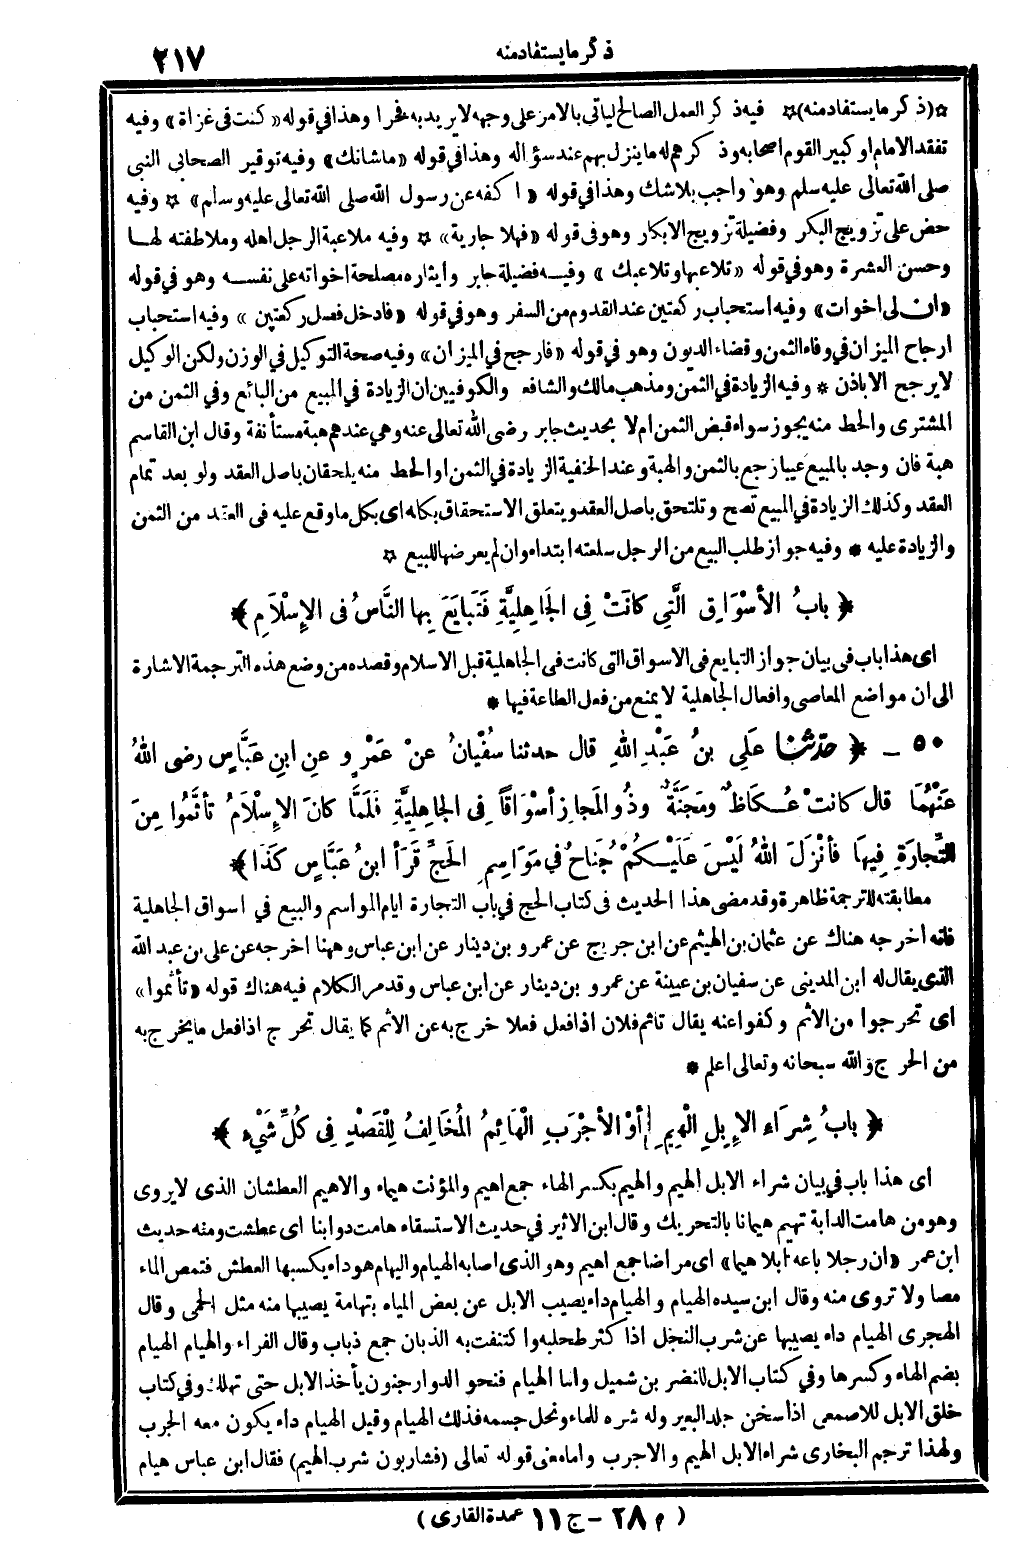 ذكر ما يستفاد منه ٢١٧
☆ (ذكر ما يستفاد منه) ☆ فيه ذكر العمل الصالح ليأتي بالامر على وجهه لا يريد به فخرا وهذا في قوله «كنت في غزاة» وفيه
تفقد الامام او كبير القوم اصحابه وذكرهم له ما ينزل بهم عند سؤاله وهذا في قوله «ما شانك» وفيه توقير الصحابي النبي
صلى الله تعالى عليه سلم وهو واجب بلا شك وهذا في قوله «اكفه عن رسول الله صلى الله تعالى عليه وسلم» ☆ وفيه
حض على تزويج البكر وفضيلة تزويج الابكار وهو في قوله «فهلا جارية» ☆ وفيه ملاعبة الرجل اهله وملاطفته لها
وحسن العشرة وهو في قوله «تلاعبها وتلاعبك» وفيه فضيلة جابر وأيثاره مصلحة اخواته على نفسه وهو في قوله
«ان لى اخوات» وفيه استحباب ركعتين عند القدوم من السفر وهو في قوله «فادخل فصل ركعتين» وفيه استحباب
ارجاح الميزان في وفاء الثمن وقضاء الديون وهو في قوله «فارجح في الميزان» وفيه صحة التوكيل في الوزن ولكن الوكيل
لا يرجح الا باذن * وفيه الزيادة في الثمن ومذهب مالك والشافعى والكوفيين ان الزيادة في المبيع من البائع وفي الثمن من
المشترى والحط منه يجوز سواء قبض الثمن ام لا بحديث جابر رضى الله تعالى عنه وهي عندهم هبة مستأنفة وقال ابن القاسم
هبة فان وجد بالمبيع عيبا رجع بالثمن والهبة وعند الحنفية الزيادة في الثمن او الحط منه يلحقان باصل العقد ولو بعد تمام
العقد وكذلك الزيادة في المبيع تصح وتلتحق باصل العقد ويتعلق الاستحقاق بكله اى بكل ما وقع عليه فى العقد من الثمن
والزيادة عليه * وفيه جواز طلب البيع من الرجل سلعته ابتداء وان لم يعرضها للبيع ☆
﴿ بابُ الأسْوَاقِ الَّتِي كانَتْ فِى الجَاهِليَّةِ فَتَبَايَعَ بِها النَّاسُ فى الإسْلَامِ ﴾
اى هذا باب فى بيان جواز التبايع فى الاسواق التى كانت فى الجاهلية قبل الاسلام وقصده من وضع هذه الترجمة الاشارة
الى ان مواضع المعاصى وافعال الجاهلية لا يمنع من فعل الطاعة فيها *
٥٠ – ﴿ حدثنا عَلِي بنُ عَبْدِ اللهِ قال حدثنا سُفْيَانُ عنْ عَمْرٍو عنِ ابنِ عَبَّاسٍ رضى اللهُ
عَنْهُمَا قال كانتْ عُكَاظٌ ومَجَنَّةُ وذُو المَجازِ أسْوَاقاً فِى الجاهِليَّةِ فَلَمَّا كانَ الإسْلَامُ تأثَّمُوا مِنَ
التِّجارَةِ فِيهَا فأنْزَلَ اللهُ لَيْسَ عَلَيْكُمْ جُنَاحٌ في مَوَاسِمِ الحَجِّ قَرَأ ابنُ عَبَّاسٍ كَذَا ﴾
مطابقته للترجمة ظاهرة وقد مضى هذا الحديث فى كتاب الحج في باب التجارة ايام المواسم والبيع في اسواق الجاهلية
فانه اخرجه هناك عن عثمان بن الهيثم عن ابن جريج عن عمرو بن دينار عن ابن عباس وههنا اخرجه عن على بن عبد الله
الذى يقال له ابن المدينى عن سفيان بن عيينة عن عمرو بن دينار عن ابن عباس وقد مر الكلام فيه هناك قوله «تأثموا»
اى تحرجوا من الاثم وكفوا عنه يقال تاثم فلان اذا فعل فعلا خرج به عن الاثم كما يقال تحرج اذا فعل ما يخرج به
من الحرج والله سبحانه وتعالى اعلم *
﴿ بابُ شِرَاءِ الإبِلِ الْهِيمِ أوْ الأجْرَبِ الْهَائِمُ المُخَالِفُ لِلْقَصْدِ فِى كُلِّ شَيْءٍ ﴾
اى هذا باب في بيان شراء الابل الهيم والهيم بكسر الهاء جمع اهيم والمؤنث هيماء والاهيم العطشان الذى لا يروى
وهو من هامت الدابة تهيم هيمانا بالتحريك وقال ابن الاثير في حديث الاستسقاء هامت دوابنا اى عطشت ومنه حديث
ابن عمر «ان رجلا باعه ابلا هيما» اى مراضا جمع اهيم وهو الذى اصابه الهيام والهيام هو داء يكسبها العطش فتمص الماء
مصا ولا تروى منه وقال ابن سيده الهيام والهيام داء يصيب الابل عن بعض المياه بتهامة يصيبها منه مثل الحمى وقال
الهجرى الهيام داء يصيبها عن شرب النجل اذا كثر طحلبه واكتنفت به الذبان جمع ذباب وقال الفراء والهيام الهيام
بضم الهاء وكسرها وفي كتاب الابل للنضر بن شميل واما الهيام فنحو الدوار جنون يأخذ الابل حتى تهلك وفي كتاب
خلق الابل للاصمعى اذا سخن جلد البعير وله شره للماء ونحل جسمه فذلك الهيام وقيل الهيام داء يكون معه الجرب
ولهذا ترجم البخارى شراء الابل الهيم والاجرب واما معنى قوله تعالى (فشاربون شرب الهيم) فقال ابن عباس هيام
( م ٢٨ – ج ١١ عمدة القارى )